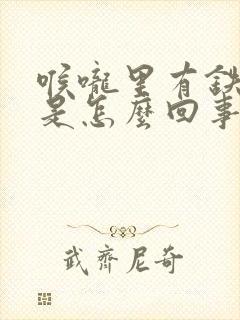 喉嚨里有鉄
是怎麼回事
武齊尼奇